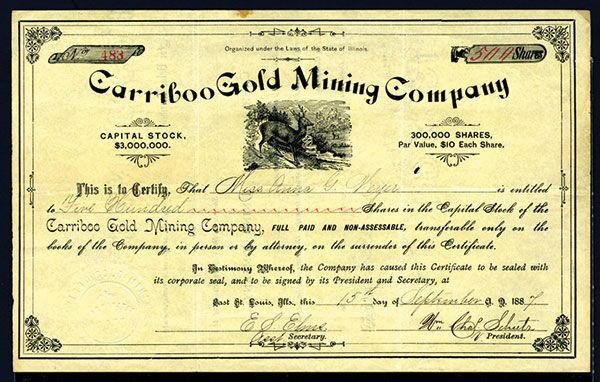 No. 483
500 Shares
Organized under the Laws of the State of Illinois.
Carriboo Gold Mining Company
CAPITAL STOCK,
$3,000,000.
300,000 SHARES,
Par Value, $10 Each Share.
This is to Certify, That Miss Anna G. is entitled
to Five Hundred Shares in the Capital Stock of the
Carriboo Gold Mining Company, FULL PAID AND NON-ASSESSABLE, transferable only on the
books of the Company, in person or by attorney, on the surrender of this Certificate.
In Testimony Whereof, the Company has caused this Certificate to be sealed with
its corporate seal, and to be signed by its President and Secretary, at
East St. Louis, Ills., this 15th day of September A. D. 1887
E. S. Wm. Chas.
Secretary. President.